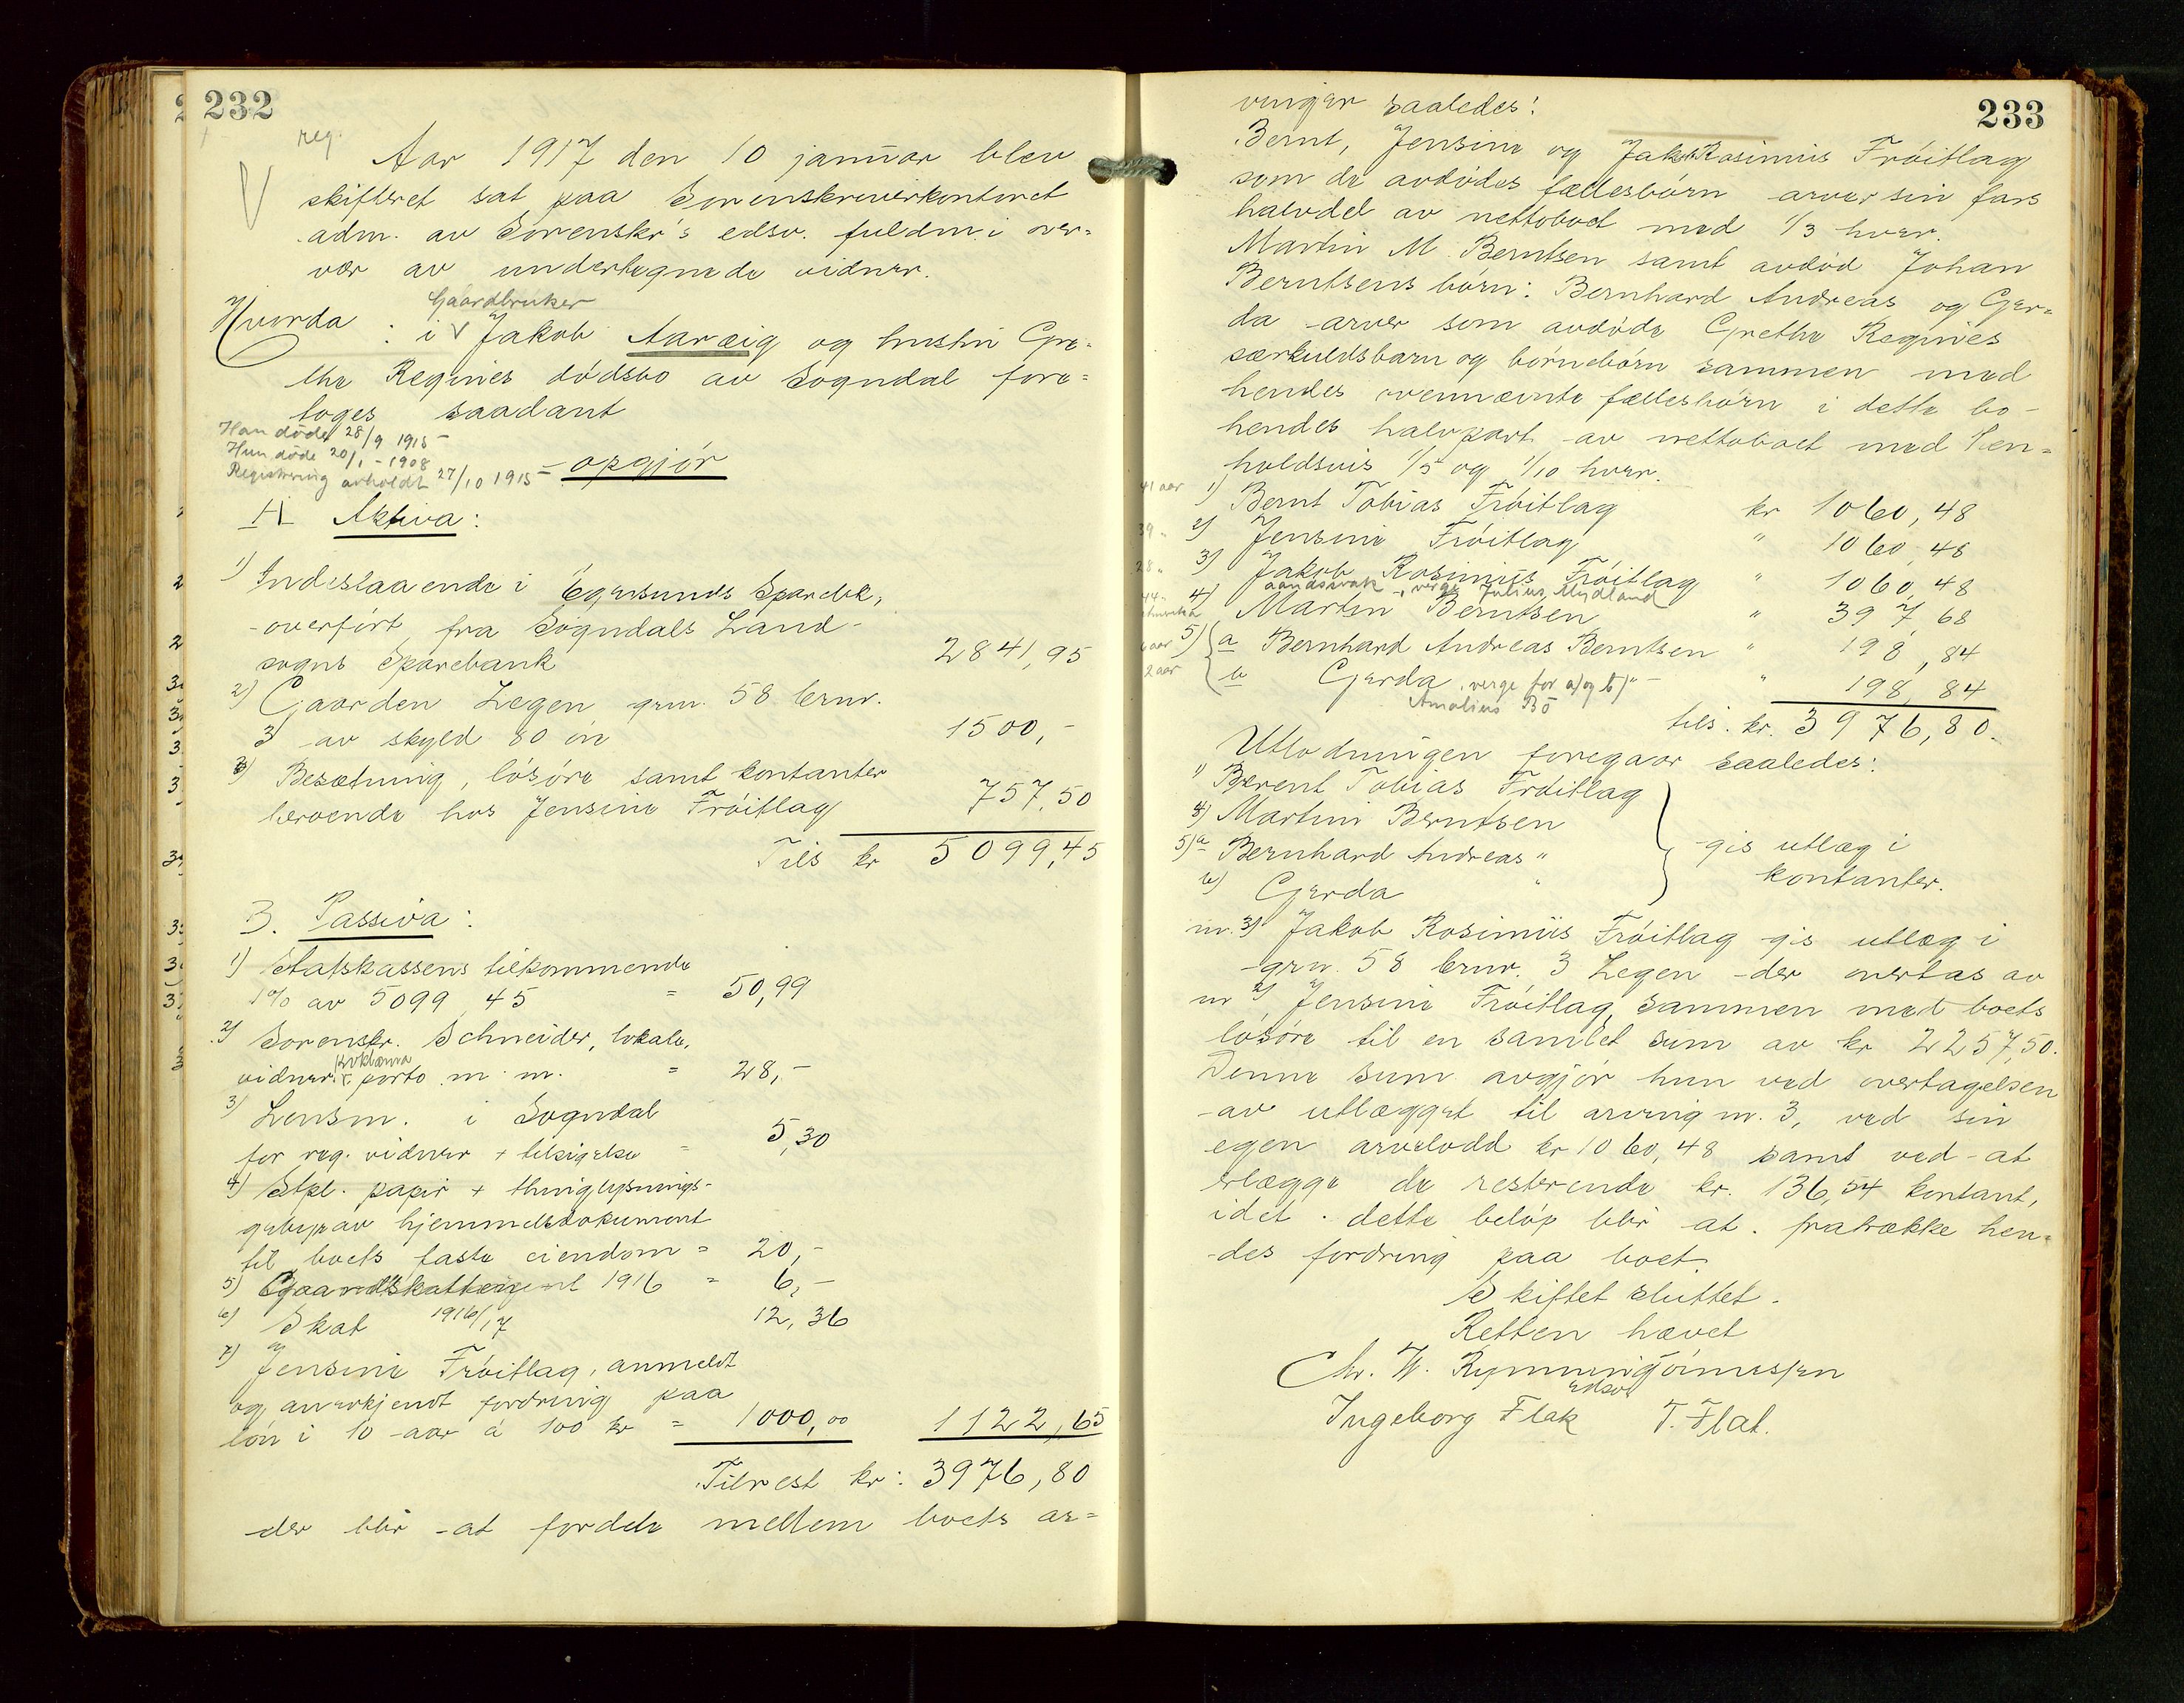 232
reg.
Aar 1917 den 10 januar blev
skifteret sat paa Sorenskriverkontoret
adm. av Sorenskr's edsv. fuldm. i over=
vær av undertegnede vidner.
Hvorda : i Gaardbruker Jakob Aaræig og hustru Gre=
the Regines dødsbo av Sogndal fore=
toges saadant
Han døde 28/9 1915 -
Hun døde 20/1 - 1908
Registrering avholdt 27/10 1915 - opgjør
A Aktiva:
1) Indestaaende i Egersunds Sparebk,
overført fra Sogndals Land-
sogns Sparebank 2841,95
2) Gaarden Legen grn. 58 brnr.
3 av skyld 80 øre 1500,-
3) Besætning, løsøre samt kontanter
beroende hos Jensine Frøitlag 757,50
Tils kr 5099,45
B. Passiva:
1) Statskassens tilkommende
1% av 5099,45 = 50,99
2) Sorenskr. Schneider, lokale,
vidner, proklama porto m. m. = 28,-
3) Lensm. i Sogndal
for reg. vidner + tilsigelse = 5,30
4) Stpl. papir + thinglysnings-
gebyr av hjemmelsdokument
til boets faste eiendom = 20,-
5) 1916 = 6,-
6) Skat 1916/17 12,36
7) Jensine Frøitlag, anmeldt
og anerkjendt fordring paa
løn i 10 aar á 100 kr = 1000,00 1122,65
Tilrest kr: 3976,80
der blir at fordele mellem boets ar=
233
vinger saaledes:
Bernt, Jensine og Jakob Rosimius Frøitlag
som de avdødes fællesbørn arver sin fars
halvdel av nettoboet med 1/3 hver.
Martin M. Berntsen samt avdød Johan
Berntsens børn: Bernhard Andreas og Ger=
da arver som avdøde Grethe Regines
særkuldsbarn og børnebørn sammen med
hendes ovennævnte fællesbørn i dette bo -
hendes halvpart av nettoboet med hen=
holdsvis 1/5 og 1/10 hver.
41 aar 1) Bernt Tobias Frøitlag kr 1060,48
39 " 2) Jensine Frøitlag " 1060,48
28 " 3) Jakob Rosimius Frøitlag " 1060,48
aandssvak -, verge Julius Mydland
44 " 4) Martin Berntsen " 397,68
5) a Bernhard Andreas Berntsen " 198,84
b Gerda, verge for a) og b) " - " 198,84
Amalius Bö
tils. kr. 3976,80.
Utlodningen foregaar saaledes:
1) Berent Tobias Frøitlag
4) Martin Berntsen
5) a Bernhard Andreas " gis utlæg i
b) Gerda " kontanter.
nr. 3) Jakob Rosimius Frøitlag gis utlæg i
grn. 58 brnr. 3 Legen der overtas av
nr 2) Jensine Frøitlag, sammen med boets
løsøre til en samlet sum av kr 2257,50.
Denne sum avgjør hun ved overtagelsen
av utlægget til arving nr. 3, ved sin
egen arvelodd kr 1060,48 samt ved at
erlægge de resterende kr. 136,54 kontant,
idet dette beløp blir at fratrække hen=
des fordring paa boet.
Skiftet sluttet.
Retten hævet
Chr. W.
edsv
Ingeborg Flak T. Flat.